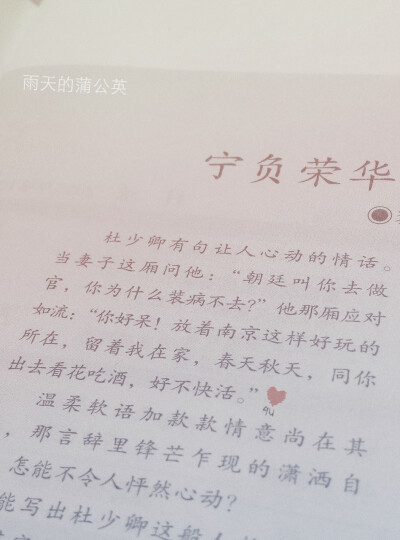 雨天的蒲公英
宁负荣华
杜少卿有句让人心动的情话。
当妻子这厢问他：“朝廷叫你去做
官，你为什么装病不去？”他那厢应对
如流：“你好呆！放着南京这样好玩的
所在，留着我在家，春天秋天，同你
出去看花吃酒，好不快活。”
温柔软语加款款情意尚在其
，那言辞里锋芒乍现的潇洒自
怎能不令人怦然心动？
能写出杜少卿这般人